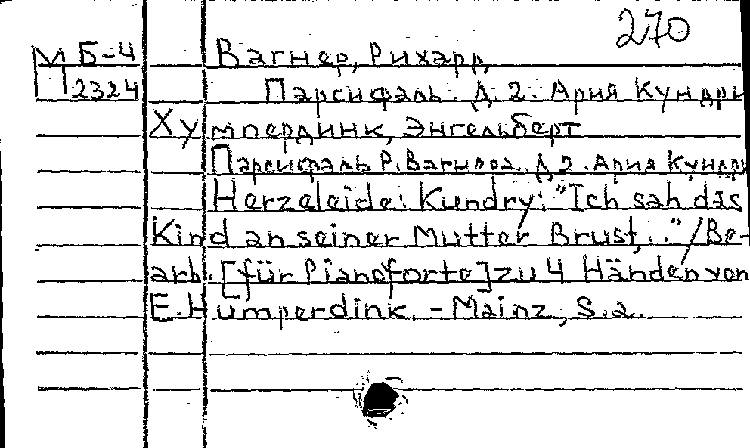 270
М Б-4
П 2324
Вагнер, Рихард,
Парсифаль. Д. 2. Ария Кундри
Хумпердинк, Энгельберт
Парсифаль Р. Вагнера. Д 2. Ария Кундри
Herzeleide: Kundry: "Ich sah das
Kind an seiner Mutter Brust,.." / Be-
arb. [für Pianoforte] zu 4 Händen von
E. Humperdink. - Mainz, S.a.